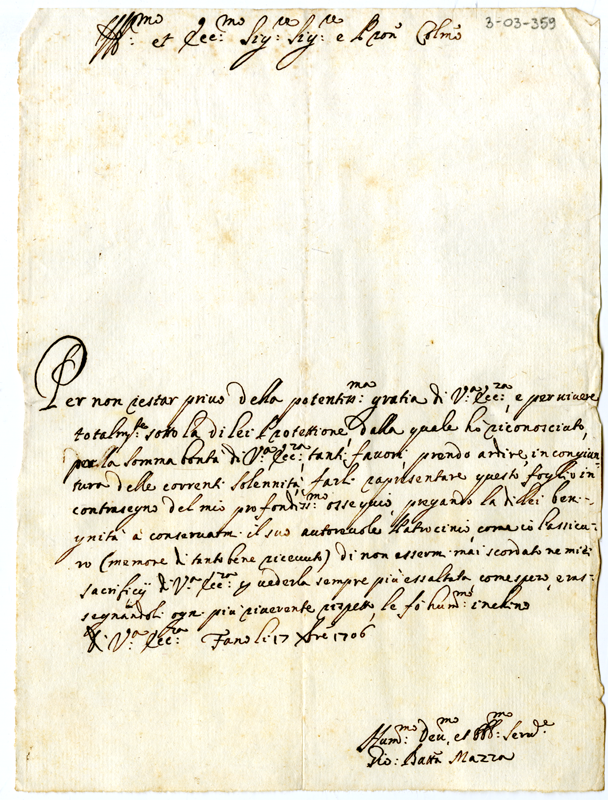 3-03-359
Ill.mo et Ecc.mo Sig.re Sig.re e Pron Colmo
Per non restar privo della potentiss.ma gratia di V.a Ecc.za, e per vivere
totalm.te sotto la di lei Protettione, dalla quale ho riconosciuto,
per la somma bontà di V.a Ecc.za tanti favori, prendo ardire, in congiun-
tura delle correnti solennità, farli rapresentare questo foglio in
contrasegno del mio profondiss.mo ossequio, pregando la di lei ben-
ignità à conservarmi il suo autorevole Patrocinio, come io l'assicu-
ro (memore di tanto bene ricevuto) di non essermi mai scordato ne miei
sacrificij di V.a Ecc.za p vederla sempre più essaltata come spero, e ras-
segnandoli ogni più riverente rispetto, le fò hum.mo inchino
D. V.a Ecc.za Fano li 17 Xbre 1706
Hum.mo Dev.mo et Obb.mo Serv.e
Gio: Batta Mazza